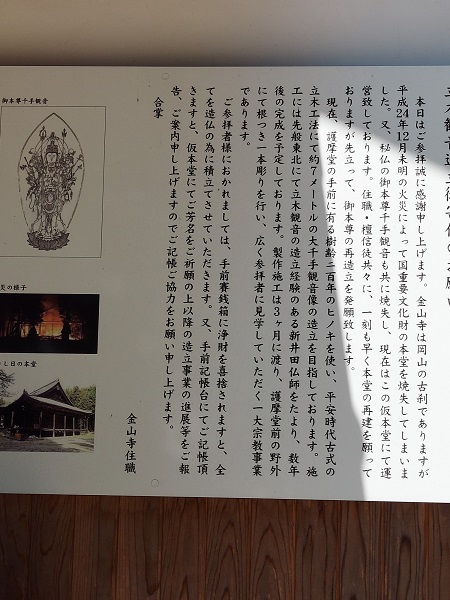 本日はご参拝誠に感謝申し上げます。金山寺は岡山の古刹でありますが
平成24年12月未明の火災によって国重要文化財の本堂を焼失してしまいま
した。又、秘仏の御本尊千手観音も共に焼失し、現在はこの仮本堂にて運
営致しております。住職・檀信徒共々に、一刻も早く本堂の再建を願って
おりますが先立って、御本尊の再造立を発願致します。
現在、護摩堂の手前に有る樹齢二百年のヒノキを使い、平安時代古式の
立木工法にて約7メートルの大千手観音像の造立を目指しております。施
工には先般東北にて立木観音の造立経験のある新井田仏師をたより、数年
後の完成を予定しております。製作施工は3ヶ月に渡り、護摩堂前の野外
にて根つき一本彫りを行い、広く参拝者に見学していただく一大宗教事業
であります。
ご参拝者様におかれましては、手前賽銭箱に浄財を喜捨されますと、全
てを造仏の為に積立てさせていただきます。又、手前記帳台にてご記帳頂
きますと、仮本堂にてご芳名をご祈願の上以降の造立事業の進展等をご報
告、ご案内申し上げますのでご記帳ご協力をお願い申し上げます。
合掌
金山寺住職
御本尊千手観音
災の様子
し日の本堂